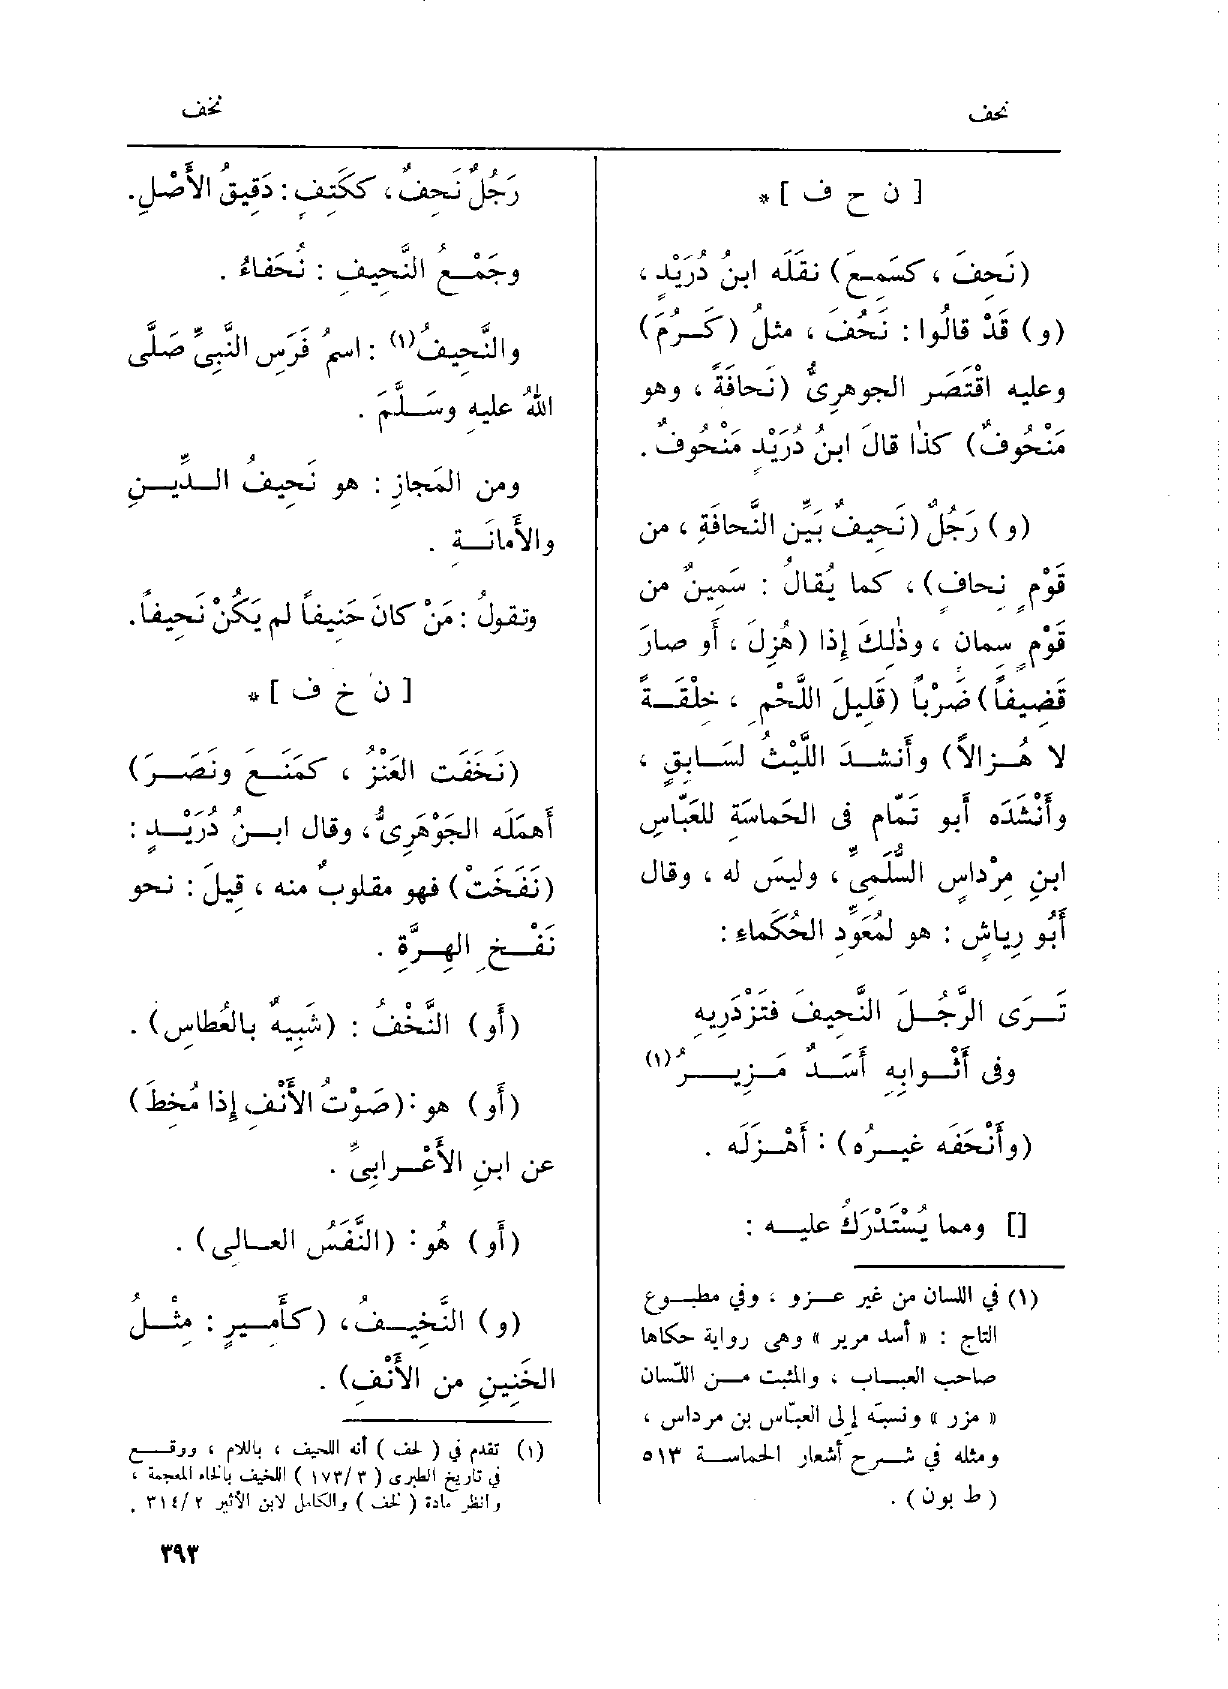 نحف
نخف
[ ن ح ف ] *
(نَحِفَ ، كسَمِعَ) نقَلَه ابنُ دُرَيْدٍ ،
(و) قَدْ قالُوا : نَحُفَ ، مثلُ (كَرُمَ)
وعليه اقْتَصَر الجوهرىُّ (نَحافَةً ، وهو
مَنْحُوفٌ) كذٰا قالَ ابنُ دُرَيْدٍ مَنْحُوفٌ .
(و) رَجُلٌ (نَحِيفٌ بَيِّن النَّحافَةِ ، من
قَوْمٍ نِحافٍ) ، كما يُقالُ : سَمِينٌ من
قَوْمٍ سِمانٍ ، وذٰلِكَ إِذا (هُزِلَ ، أَو صارَ
قَضِيفاً) ضَرْباً (قَلِيلَ اللَّحْمِ ، خِلْقَةً
لا هُزالاً) وأَنشدَ اللَّيْثُ لسَابِقٍ ،
وأَنْشَدَه أَبو تَمّام فى الحَماسَةِ للعَبّاسِ
ابنِ مِرْداسٍ السُّلَمِىِّ ، وليسَ له ، وقال
أَبُو رِياشٍ : هو لمُعَوِّدِ الحُكَماءِ :
تَرَى الرَّجُلَ النَّحِيفَ فتَزْدَرِيهِ
وفى أَثْوابِهِ أَسَدٌ مَزِيرُ (١)
(وأَنْحَفَه غيرُه) : أَهْزَلَه .
[] ومما يُسْتَدْرَكُ عليه :
(١) في اللسان من غير عزو ، وفي مطبوع
التاج : « أسد مرير » وهى رواية حكاها
صاحب العباب ، والمثبت من اللسان
« مزر » ونسبَه إلى العبّاس بن مرداس ،
ومثله في شرح أشعار الحماسة ٥١٣
( ط بون ) .
رَجُلٌ نَحِفٌ ، ككَتِفٍ : دَقِيقُ الأَصْلِ .
وجَمْعُ النَّحِيفِ : نُحَفاءُ .
والنَّحِيفُ (١) : اسمُ فَرَسِ النَّبِىِّ صَلَّى
اللهُ عليهِ وسَلَّمَ .
ومن المَجازِ : هو نَحِيفُ الدِّينِ
والأَمانَةِ .
وتقولُ : مَنْ كانَ حَنِيفاً لم يَكُنْ نَحِيفاً .
[ ن خ ف ] *
(نَخَفَت العَنْزُ ، كمَنَعَ ونَصَرَ)
أهمَلَه الجَوْهَرِىُّ ، وقال ابنُ دُرَيْدٍ :
(نَفَخَتْ) فهو مقلوبٌ منه ، قِيلَ : نحو
نَفْخِ الهِرَّةِ .
(أَو) النَّخْفُ : (شَبِيهٌ بالعُطاسِ) .
(أَو) هو : (صَوْتُ الأَنْفِ إِذا مُخِطَ)
عن ابنِ الأَعْرابِىِّ .
(أَو) هُو : (النَّفَسُ العالِى) .
(و) النَّخِيفُ ، (كأَمِيرٍ : مِثْلُ
الخَنِينِ من الأَنْفِ) .
(١) تقدم في ( لحف ) أنه اللحيف ، باللام ، ووقع
في تاريخ الطبرى ( ٣/١٧٣ ) اللخيف بالخاء المعجمة ،
وانظر مادة ( لخف ) والكامل لابن الأثير ٢/٣١٤ .
٣٩٣